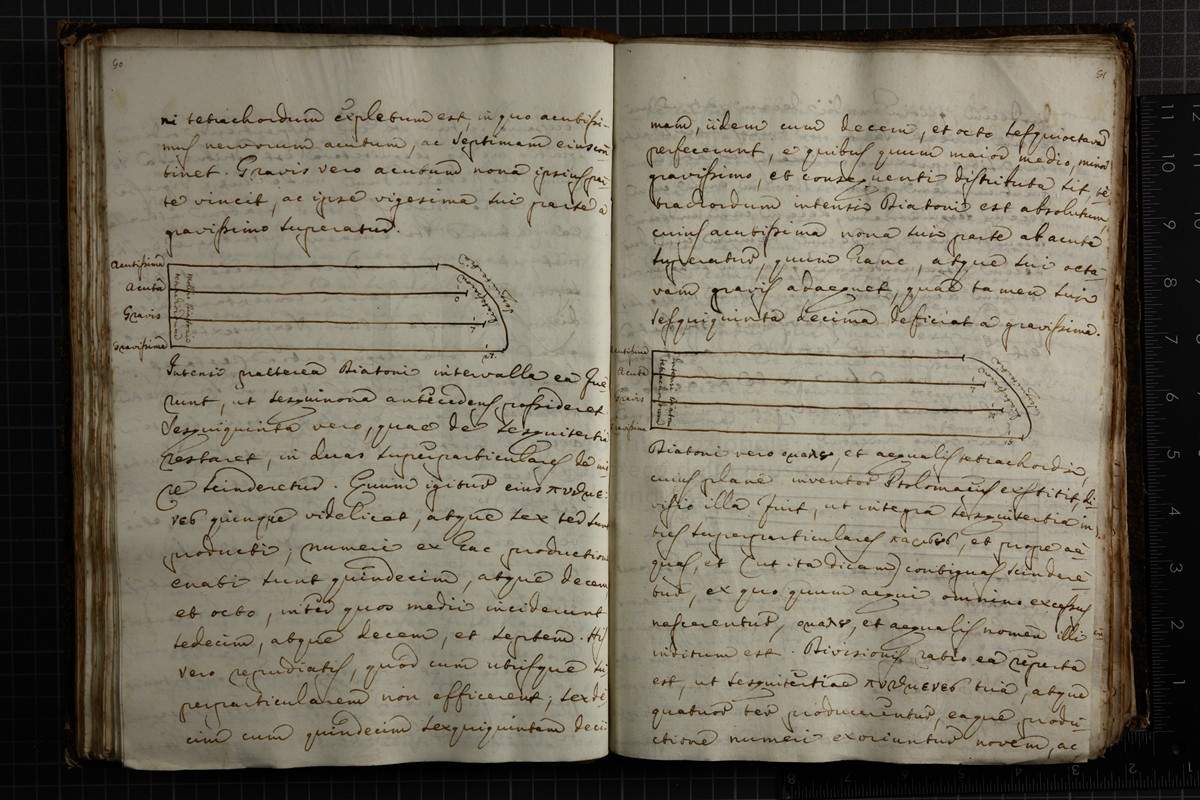 50
ni tetrachordum expletum est, in quo acutissi-
mus nervorum acutum, ac septimam eius con
tinet. Gravis vero acutum nona ipsius par
te vincit, ac ipse vigesima sui parte à
gravissimo superatur.
Acutissima
Acuta
Gravis
Gravissima
Intensi praeterea Diatoni intervalla ea fue
runt, ut sesquinona antecedens possideret.
Sesquiquinta vero, quae de sesquitertia
restaret, in duas superparticulares
scinderetur. Quum igitur eius πυθμε-
νες quinque videlicet, atque sex ter sunt
producti; numeri ex hac productione
enati sunt quindecim, atque decem
et octo, inter quos medii inciderunt
sedecim, atque decem, et septem. His
vero repudiatis, quòd cum utrisque su
perparticularem non efficerent; sexde
cim cum quindecim sexquiquintam deci
51
mam, iidem cum decem, et octo sesquioctavam
perfecerunt, è quibus quum maior medio, minor
gravissimo, et consequenti distributa sit, te
trachordum intensi Diatoni est absolutum,
cuius acutissima nona sui parte ab acuta
superatur, quum hanc, atque sui octa-
vam gravis adaequet, quae tamen sui
sesquiquinta decima deficiat à gravissima.
Acuta
Gravis
Diatoni vero et aequalis tetrachordi,
cuius plane inventor Ptolomaeus extitit, di
visio illa fuit, ut integra sesquitertia in
tres superparticulares et prope ae
quas, et (ut ita dicam) contiguas scindere
tur, ex quo quum aequi omnino excessus
nascerentur, et aequalis nomen illi
inditum est. Divisionis ratio ea reperta
est, ut sesquitertiae πυθμενες tria, atque
quatuor ter producerentur, eaque produ
ctione numeri exoriuntur novem, ac